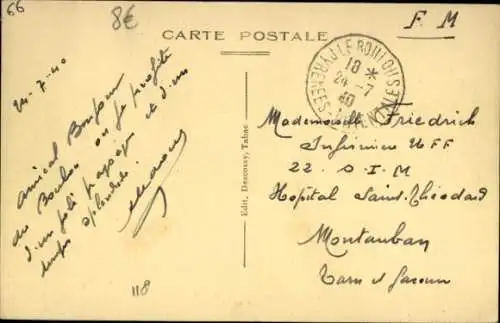 66
8€
CARTE POSTALE
F M
24-7-40
Amical Bonjour
du Boulou où je profite
d'un joli paysage et d'un
temps splendide.
LE BOULOU
18 *
24-7
40
PYRÉNÉES ORIENTALES
Edit. Descossy, Tabac
Mademoiselle Friedrich
Infirmière UFF
22 S.I.M
Hopital Saint-Théodard
Montauban
Tarn et Garonne
118